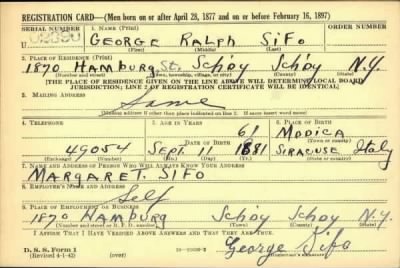 REGISTRATION CARD—(Men born on or after April 28, 1877 and on or before February 16, 1897)
SERIAL NUMBER 1. NAME (Print)
U GEORGE RALPH SIFO
(First) (Middle) (Last)
2. PLACE OF RESIDENCE (Print)
1870 HAMBURG St. Schdy Schdy N.Y.
(Number and street) (Town, township, village, or city) (County) (State)
[THE PLACE OF RESIDENCE GIVEN ON THE LINE ABOVE WILL DETERMINE LOCAL BOARD
JURISDICTION; LINE 2 OF REGISTRATION CERTIFICATE WILL BE IDENTICAL]
3. MAILING ADDRESS
Same
[Mailing address if other than place indicated on line 2. If same insert word same]
4. TELEPHONE 5. AGE IN YEARS 6. PLACE OF BIRTH
61 MODICA
DATE OF BIRTH
49054 SEPT. 11 1881 SIRACUSE Italy
7. NAME AND ADDRESS OF PERSON WHO WILL ALWAYS KNOW YOUR ADDRESS
MARGARET. SIFO
8. EMPLOYER'S NAME AND ADDRESS
Self
9. PLACE OF EMPLOYMENT OR BUSINESS
1870 HAMBURG Schdy Schdy N.Y.
(Number and street or R. F. D. number) (Town) (County) (State)
I AFFIRM THAT I HAVE VERIFIED ABOVE ANSWERS AND THAT THEY ARE TRUE.
D. S. S. Form 1
(Revised 4-1-42) (over)
George Sifo
(Registrant's signature)